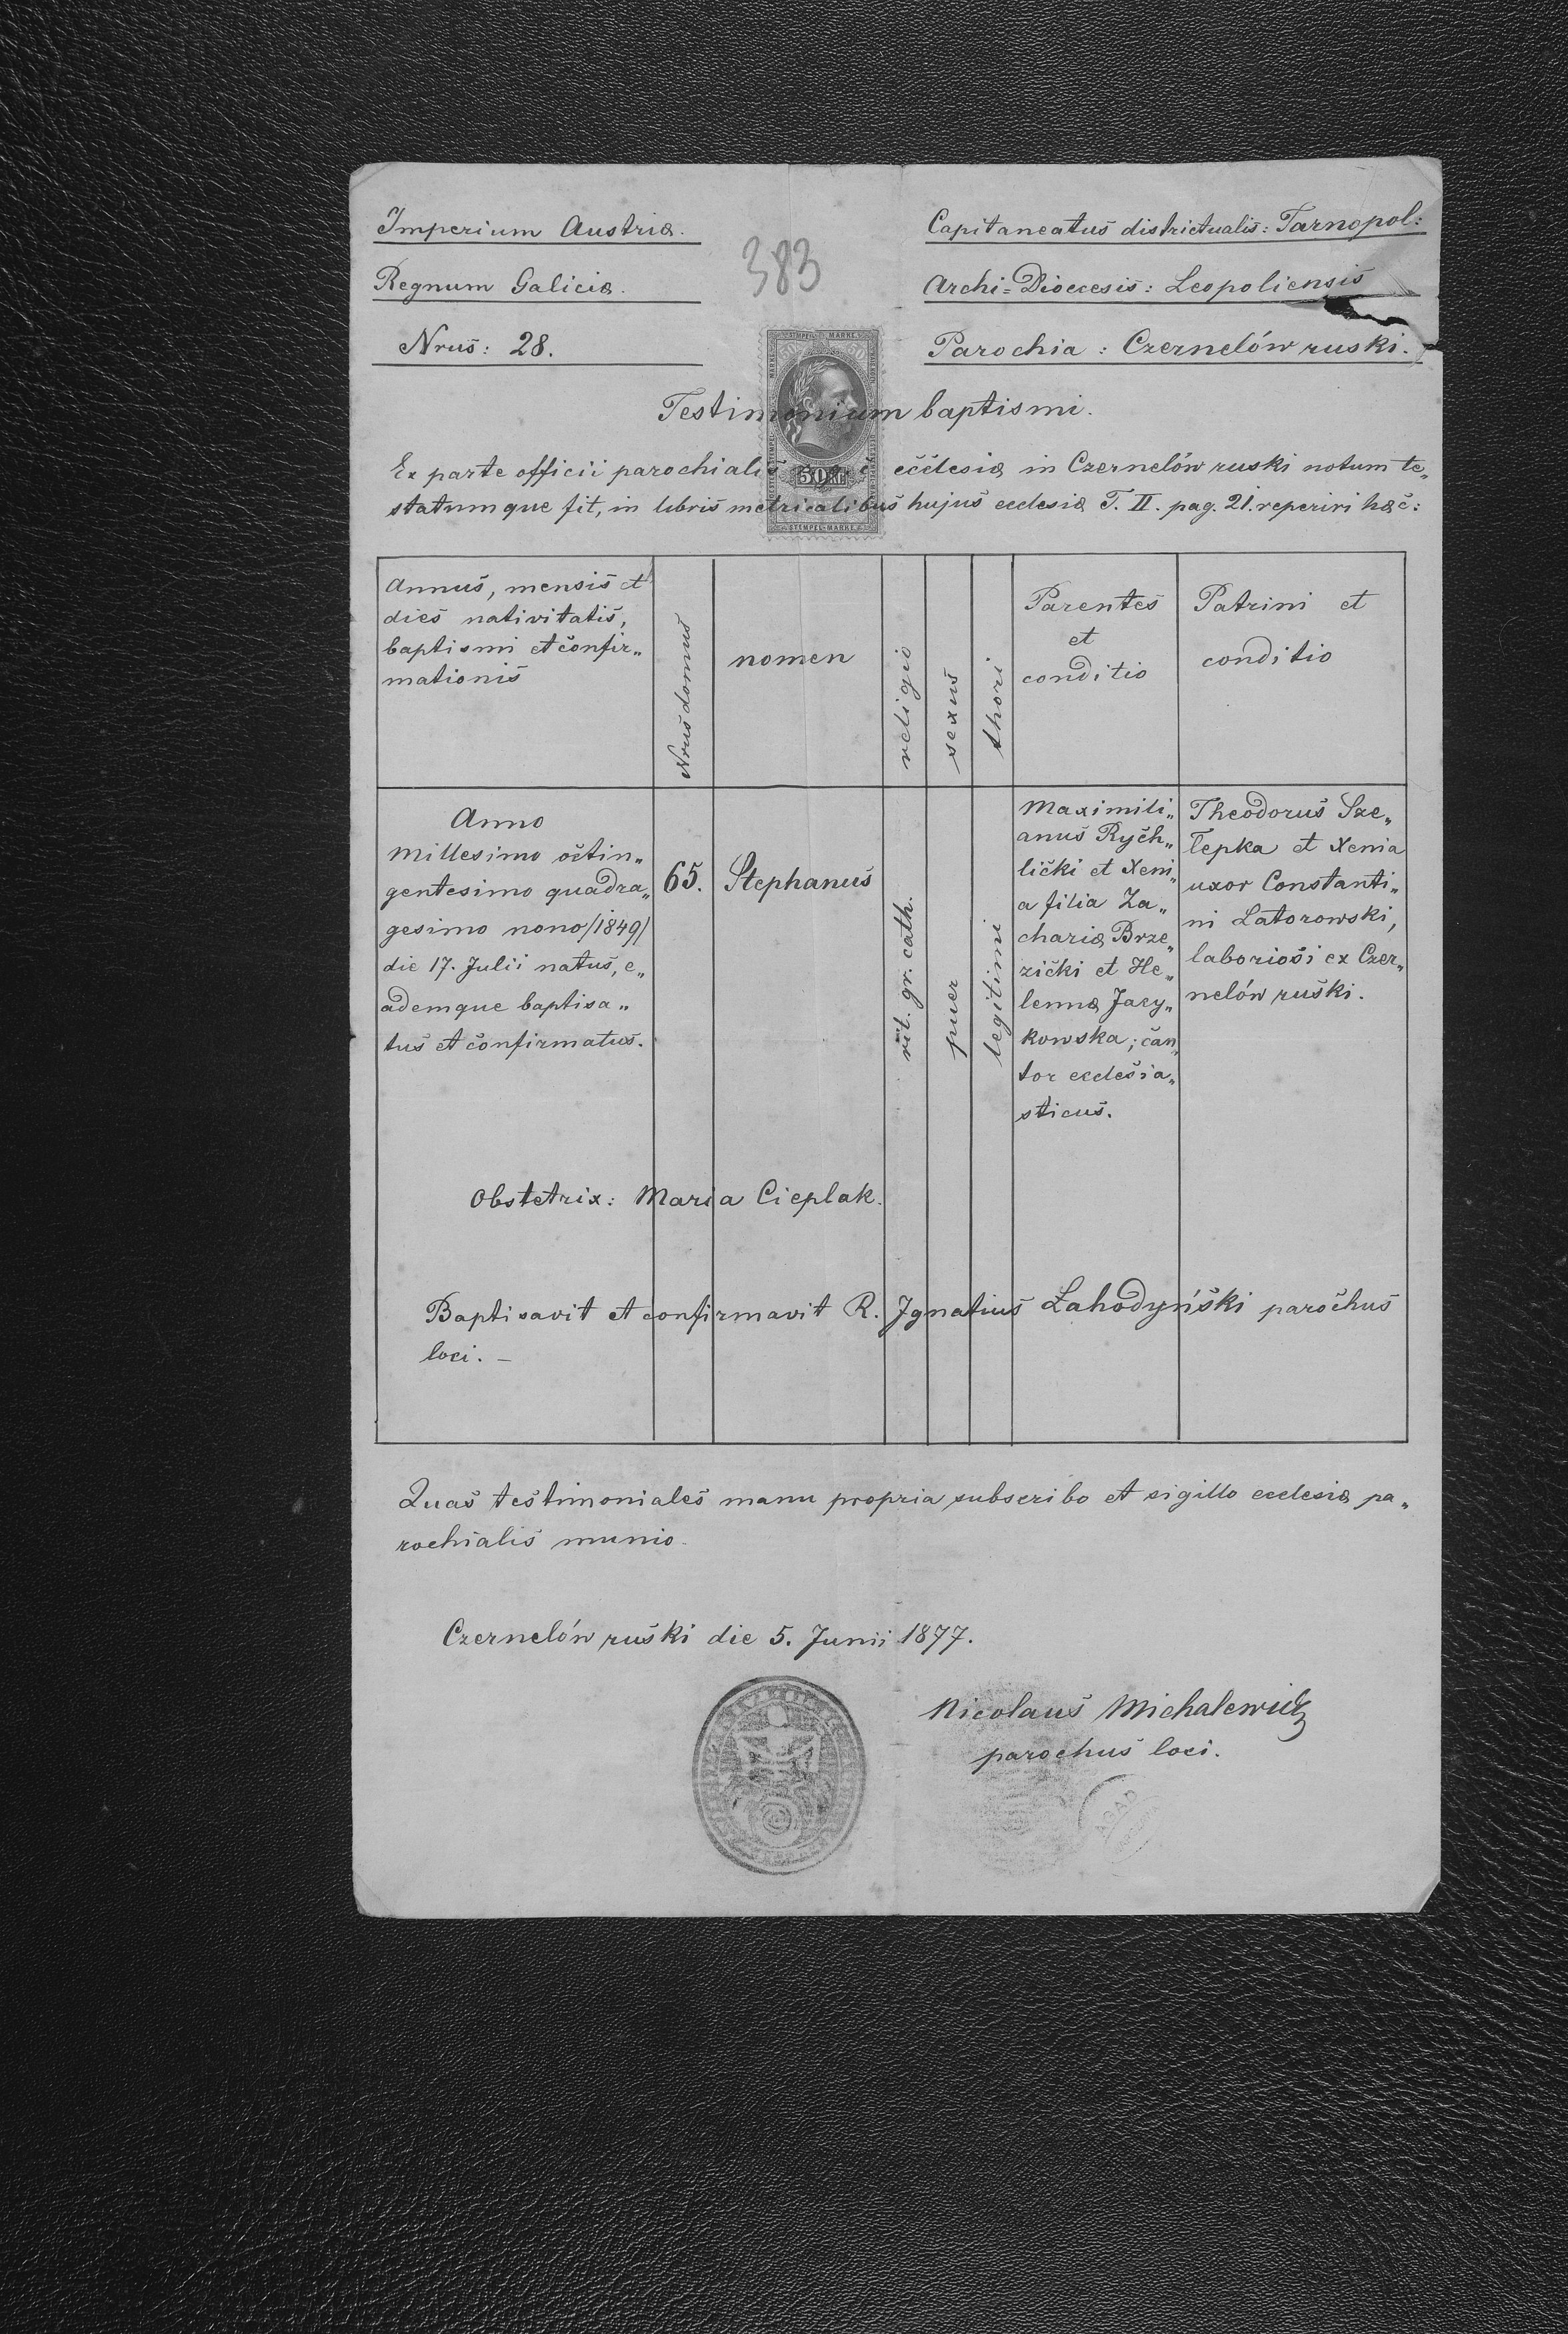 Imperium Austriæ.
Capitaneatus districtualis: Tarnopol:
383
Regnum Galiciæ.
Archi=Dioecesis: Leopoliensis
Nrus: 28.
Parochia: Czernelów ruski.
STEMPEL-MARKE
Testimonium baptismi.
Ex parte officii parochialis ecclesiæ in Czernelów ruski notum te„
50 KR
statumque fit, in libris metricalibus hujus ecclesiæ T. II. pag. 21. reperiri hæc:
STEMPEL-MARKE
Annus, mensis et
dies nativitatis,
baptismi et confir„
mationis
Nrus domus
nomen
religio
sexus
thori
Parentes
et
conditio
Patrini et
conditio
Anno
Millesimo octin„
gentesimo quadra„
gesimo nono /1849/
die 17. Julii natus, e„
ademque baptisa„
tus et confirmatus.
65.
Stephanus
rit. gr. cath.
puer
legitimi
Maximili„
anus Rych„
licki et Xeni„
a filia Za„
chariæ Brze„
zicki et He„
lennæ Jacy„
kowska; can„
tor ecclesia„
sticus.
Theodorus Sze„
łepka et Xenia
uxor Constanti„
ni Latorowski,
laboriosi ex Czer„
nelów ruski.
Obstetrix: Maria Cieplak.
Baptisavit et confirmavit R. Ignatius Łahodyński parochus
loci. –
Quas testimoniales manu propria subscribo et sigillo ecclesiæ pa„
rochialis munio.
Czernelów ruski die 5. Junii 1877.
Nicolaus Michalewicz
parochus loci.
AGAD